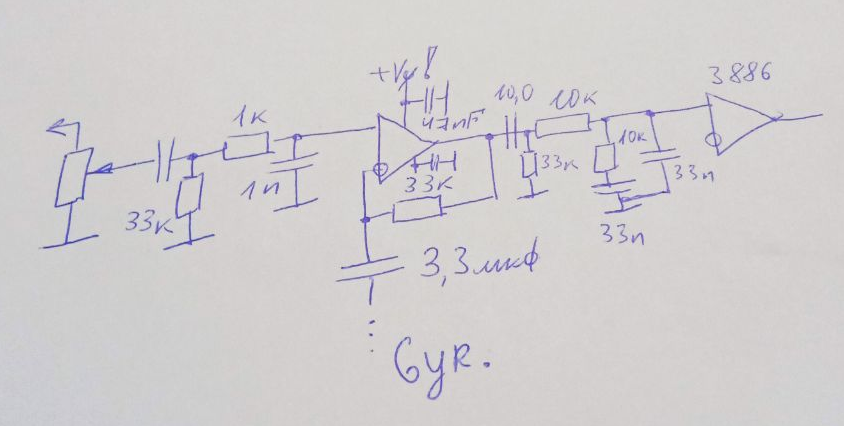 +Vy!
3886
10,0
10к
1к
47nF
10к
33к
1n
33к
33n
33к
33n
3,3мкф
Gyr.